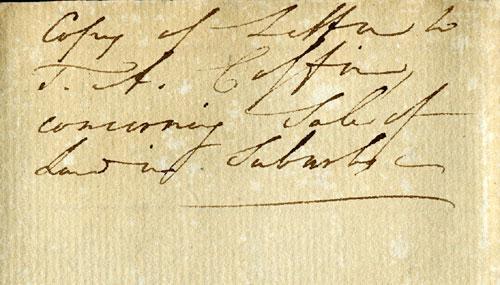 Copy of Letter to
T. A. Coffin,
concerning Sale of
Land in Suburbs